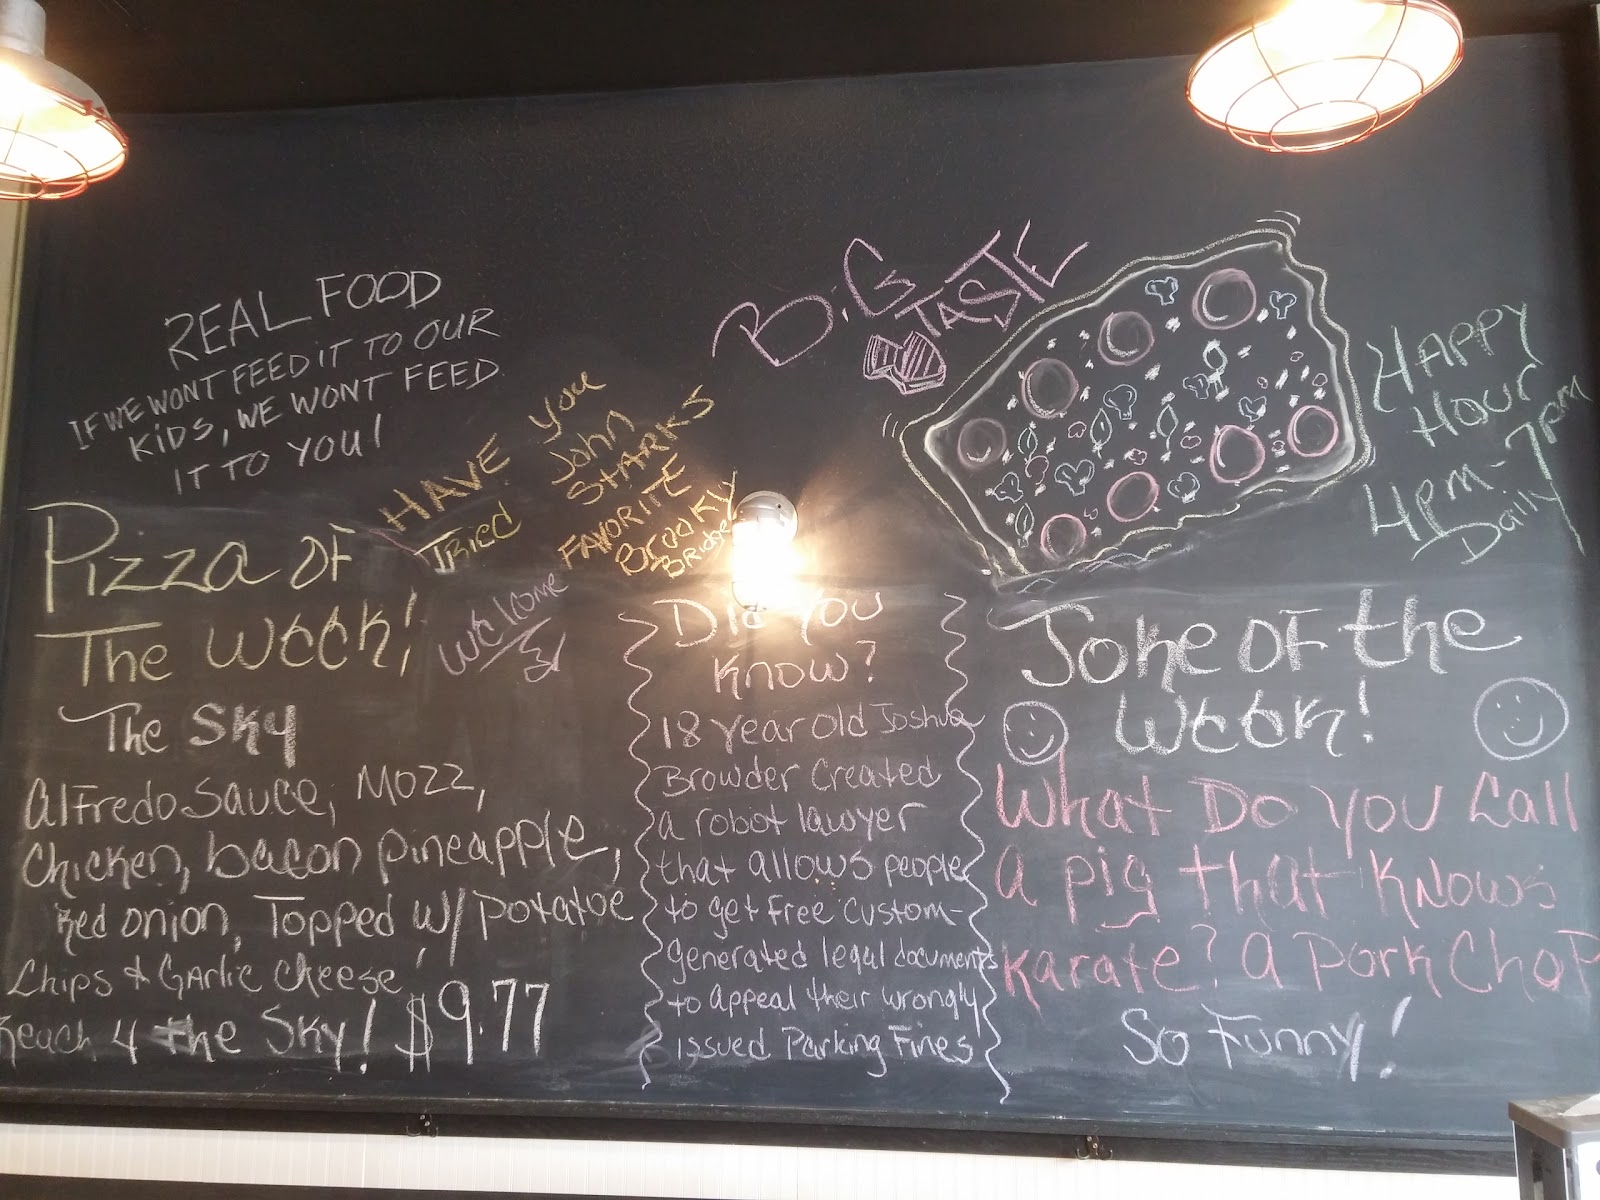 REAL FOOD
IF WE WONT FEED iT TO OUR
KiDS, WE WONT FEED
IT TO YOU!
HAVE You
Tried
John
STARKS
FAVORITE
BrooKly
Bridge
Welcome
BiG
TASTE
HAPPY
Hour
4pm-7pm
Daily
Pizza of
The Week!
The Sky
Alfredo Sauce, Mozz,
Chicken, bacon pineapple,
Red onion, Topped w/ potatoe
Chips & GArlic cheese!
Reach 4 the Sky! $9.77
Did You
Know?
18 year old Joshua
Browder Created
a robot lawyer
that allows people
to get free custom-
generated legal documents
to appeal their wrongly
issued Parking Fines
Joke of the
Week!
What Do you Call
a pig that Knows
Karate? a Pork Chop
So Funny!